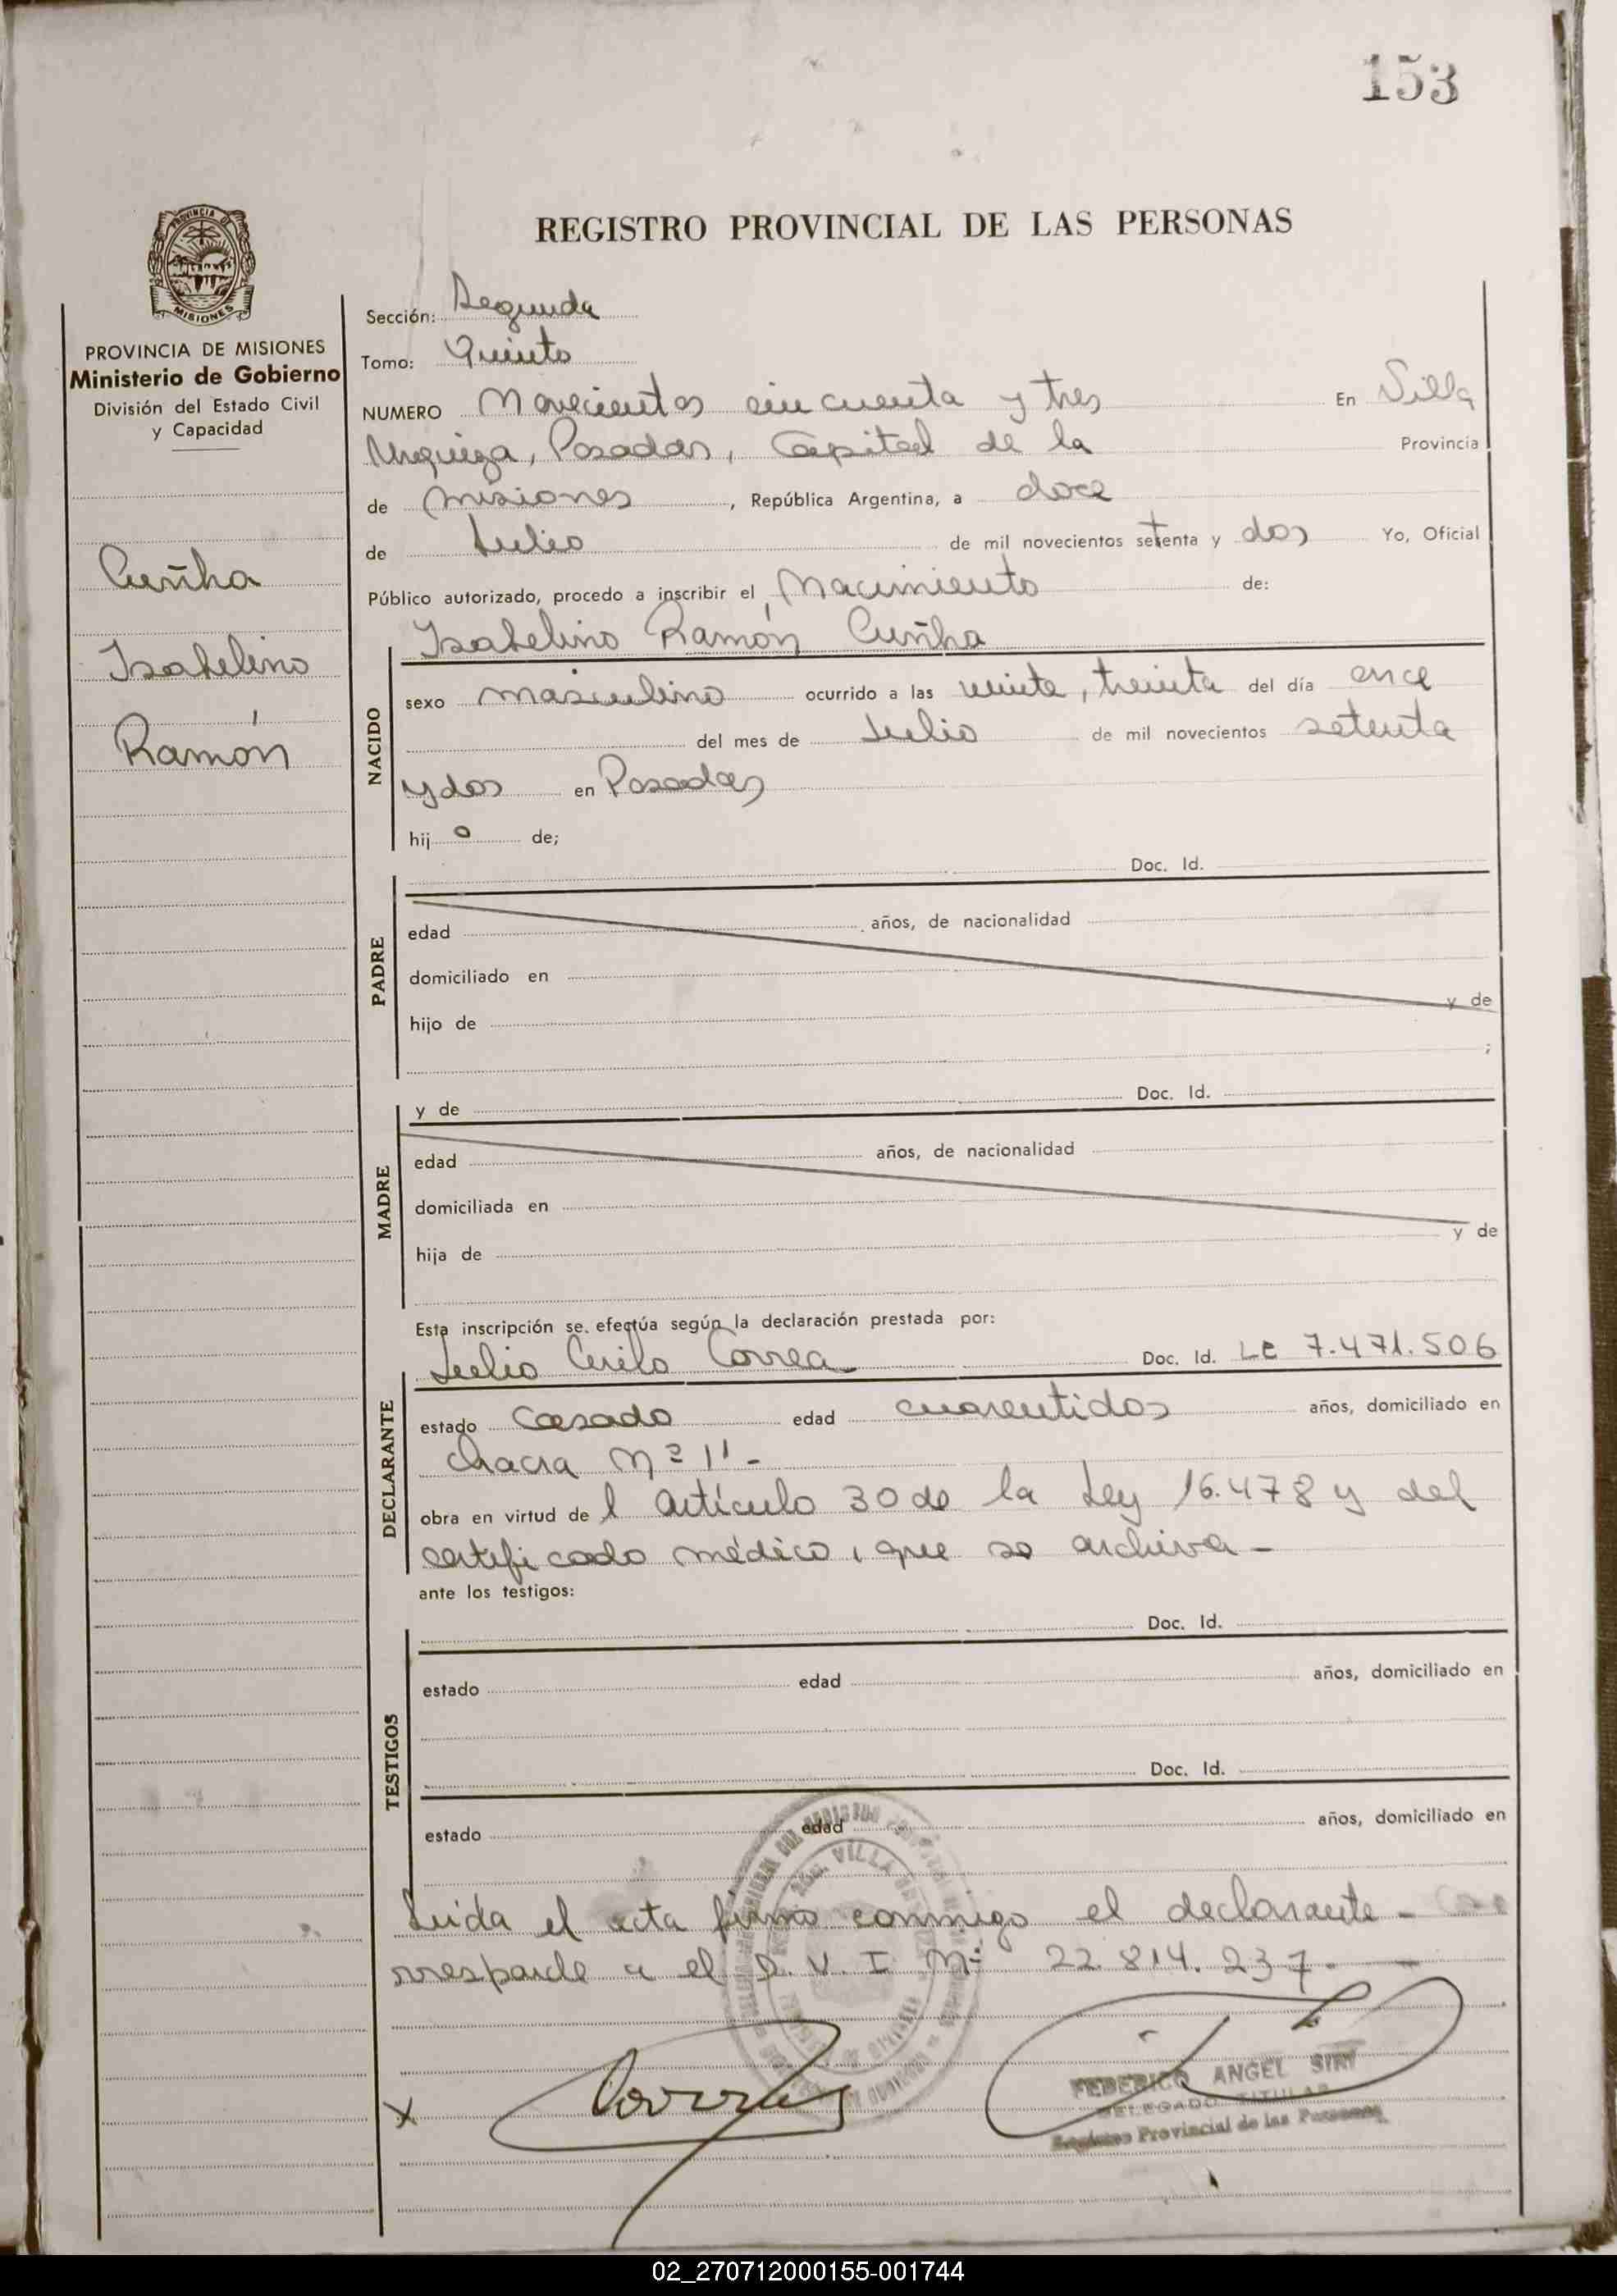 153
PROVINCIA DE
MISIONES
REGISTRO PROVINCIAL DE LAS PERSONAS
PROVINCIA DE MISIONES
Ministerio de Gobierno
División del Estado Civil
y Capacidad
Cuñha
Isabelino
Ramón
Sección: Segunda
Tomo: Quinto
NUMERO Novecientos cincuenta y tres En Villa
Urquiza, Posadas, Capital de la Provincia
de Misiones, República Argentina, a doce
de Julio de mil novecientos setenta y dos Yo, Oficial
Público autorizado, procedo a inscribir el Nacimiento de:
Isabelino Ramón Cuñha
NACIDO
sexo masculino ocurrido a las veinte, treinta del día once
del mes de Julio de mil novecientos setenta
y dos en Posadas
hijo de;
Doc. Id.
PADRE
edad años, de nacionalidad
domiciliado en
y de
hijo de
;
y de Doc. Id.
MADRE
edad años, de nacionalidad
domiciliada en
y de
hija de
Esta inscripción se efectúa según la declaración prestada por:
Julio Cirilo Correa Doc. Id. LE 7.471.506
DECLARANTE
estado casado edad cuarentidos años, domiciliado en
chacra Nº 11-
obra en virtud del artículo 30 de la Ley 16.478 y del
certificado médico, que se archiva-
ante los testigos:
Doc. Id.
TESTIGOS
estado edad años, domiciliado en
Doc. Id.
estado edad años, domiciliado en
Leida el acta firma conmigo el declarante - Co
rresponde a el D. N. I Nº 22.814.237.-
x Correa
FEDERICO ANGEL SIRY
DELEGADO TITULAR
Registro Provincial de las Personas
02_270712000155-001744